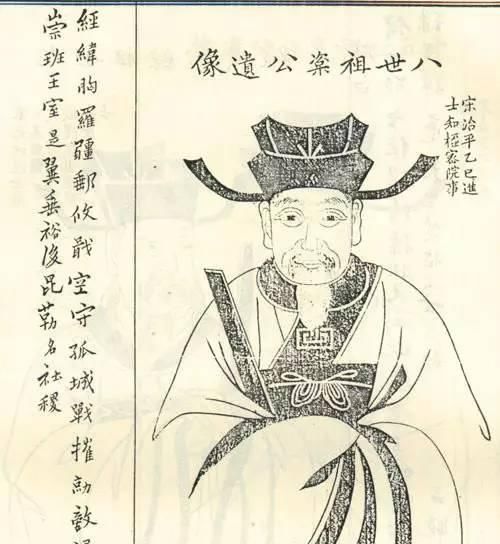 八世祖楶公遺像
宋治平乙巳進
士知樞密院事
經緯胸羅疆郵攸戢空守孤城戰摧勍敵
崇班王室是翼垂裕後昆勒名社稷